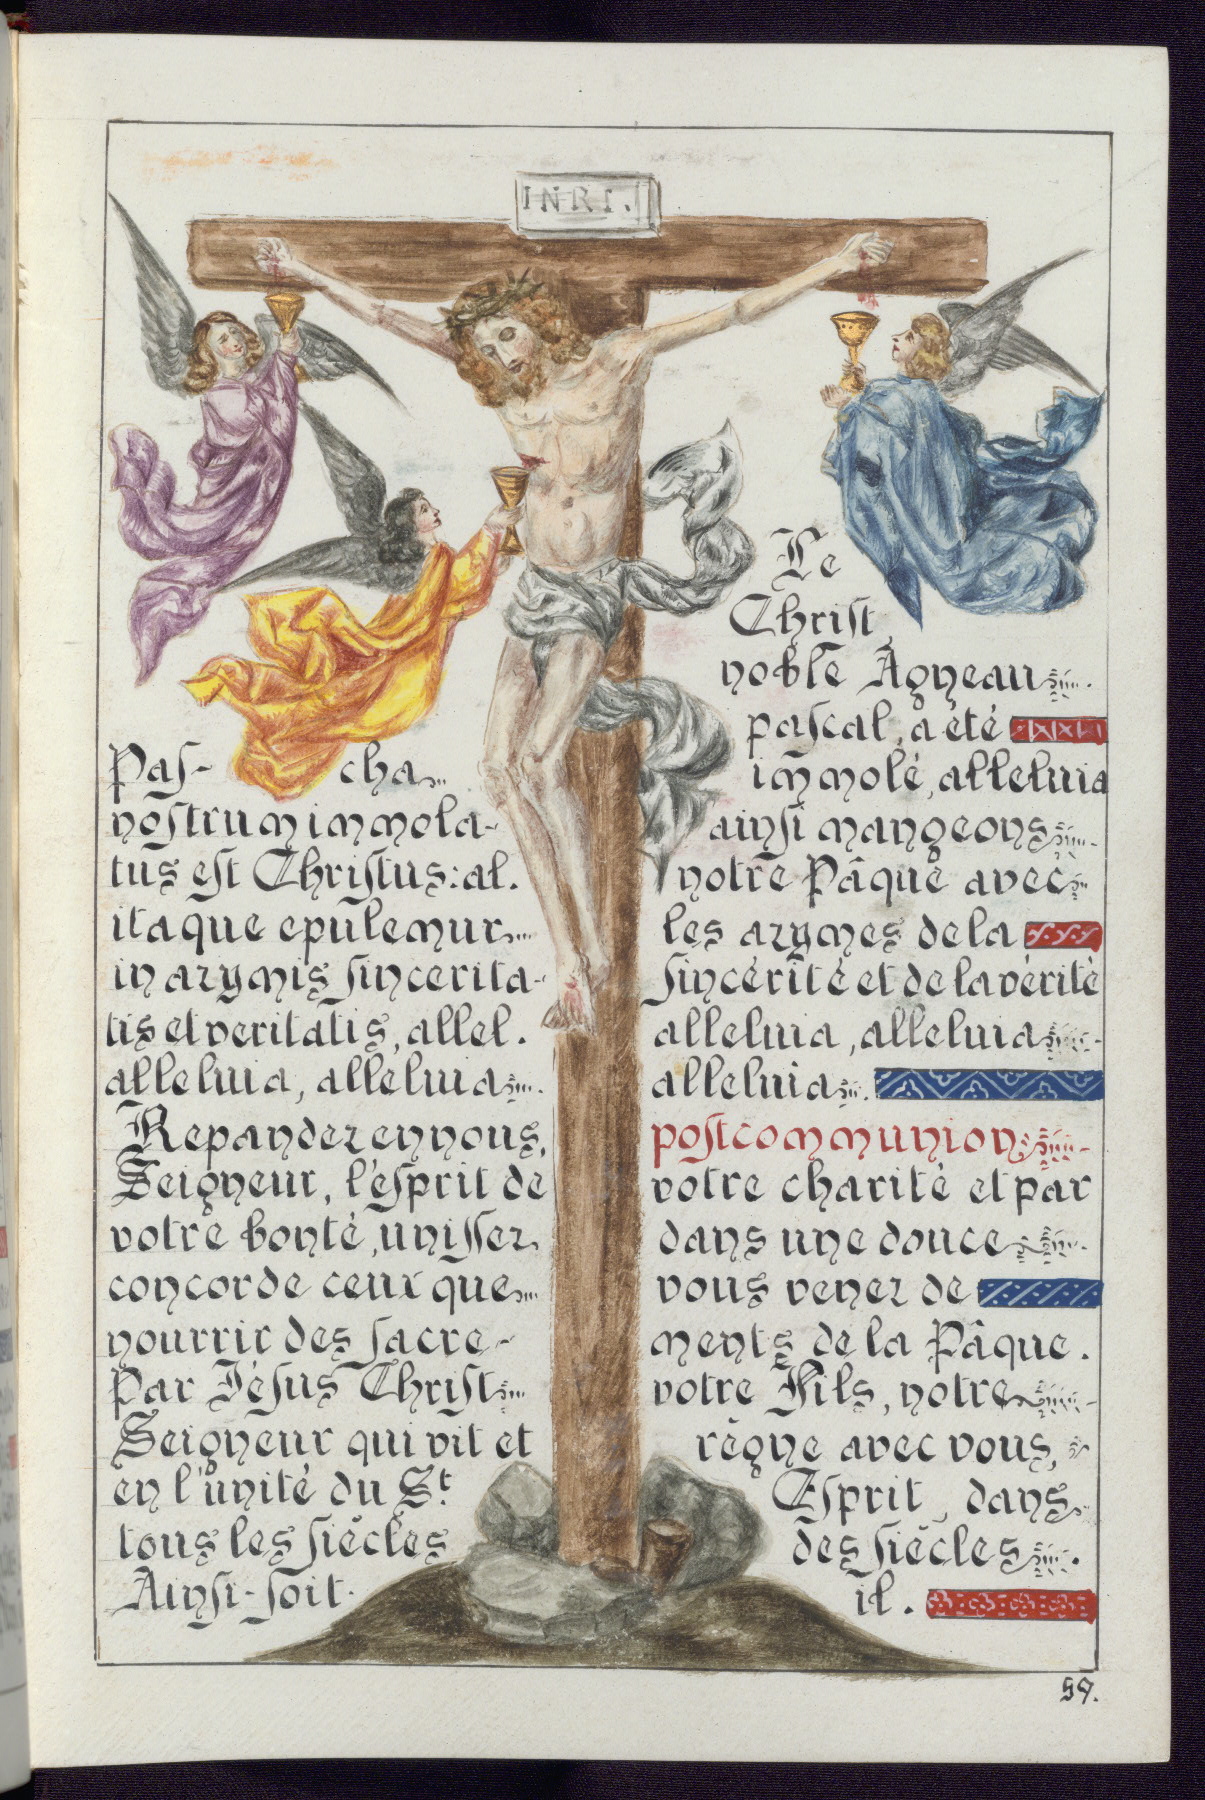 INRI.
Pas- cha
nostrum immola-
tus est Christus: al.
itaque epulemur
in azymis sincerita-
tis et veritatis, allel.
alleluia, alleluia
Le
Christ,
noble Agneau
pascal, a été
immolé, alleluia
ainsi mangeons
notre Pâque avec
les azymes de la
sincérité et de la vérité
alleluia, alleluia
alleluia.
postcommunion
Repandez en nous,
Seigneur, l'esprit de votre charité et par
votre bonté, unissez dans une douce
concorde ceux que vous venez de
nourrir des sacre- ments de la Pâque.
Par Jésus Christ votre Fils, notre
Seigneur qui vit et règne avec vous,
en l'unité du St. Esprit, dans
tous les siècles des siècles.
Ainsi-soit- il.
59.